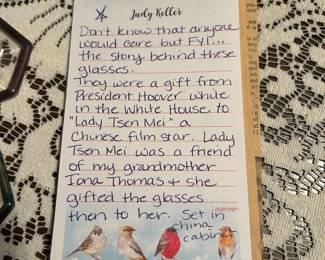 Judy Keller
Don't know that anyone
would care but FYI...
the story behind these
glasses.
They were a gift from
President Hoover while
in the White House to
"Lady Tsen Mei" a
Chinese film star. Lady
Tsen Mei was a friend
of my grandmother
Iona Thomas & she
gifted the glasses
then to her. Set in
china
cabin